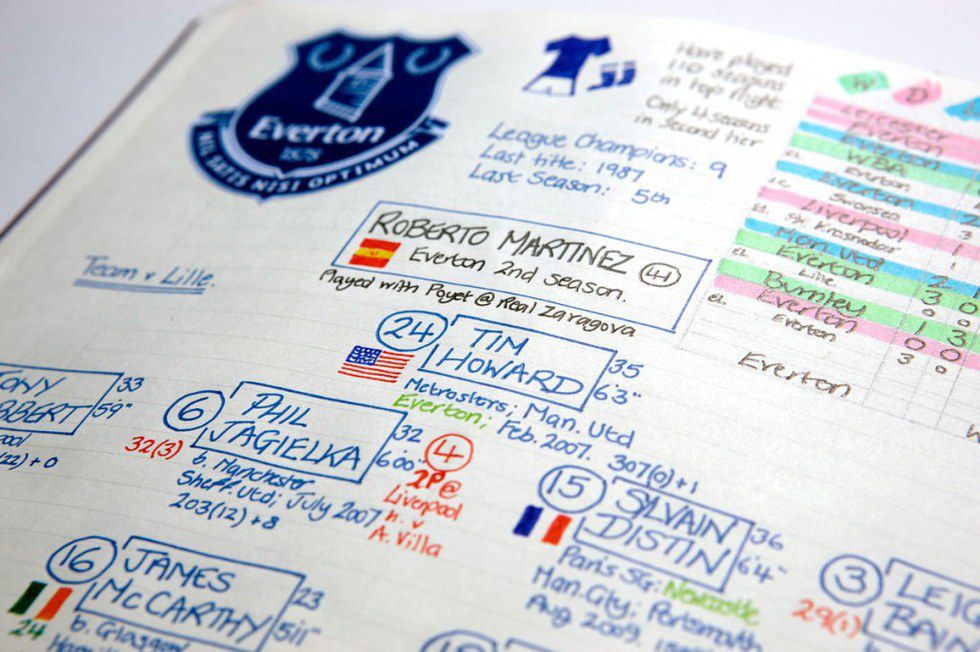 Everton
1878
NIL SATIS NISI OPTIMUM
Have played
110 seasons
in top flight
Only 4 seasons
in second tier
League Champions: 9
Last title: 1987
Last Season: 5th
W D
Leicester
Everton
WBA
Everton
Everton
Swansea
Liverpool
Krasnodar
Man Utd
Everton 2
Lille 3 0
Burnley 0 0
Everton 1 3
Everton 0 0
3 0
Everton
ROBERTO MARTINEZ 41
Everton 2nd season.
Played with Poyet @ Real Zaragova
Team v Lille.
24 TIM
HOWARD
35
6'3"
Metrostars; Man. Utd
Everton; Feb. 2007.
307(0)+1
33
5'9"
6 PHIL
JAGIELKA
32
6'00"
32(3)
b. Manchester
Sheff. Utd; July 2007
203(12)+8
4
2P@
Liverpool
h. v
A. Villa
15 SYLVAIN
DISTIN
36
6'4"
Paris SG; Newcastle
Man. City; Portsmouth
Aug 2009.
16 JAMES
McCARTHY
23
5'11"
24
b. Glasgow
3
29(1)